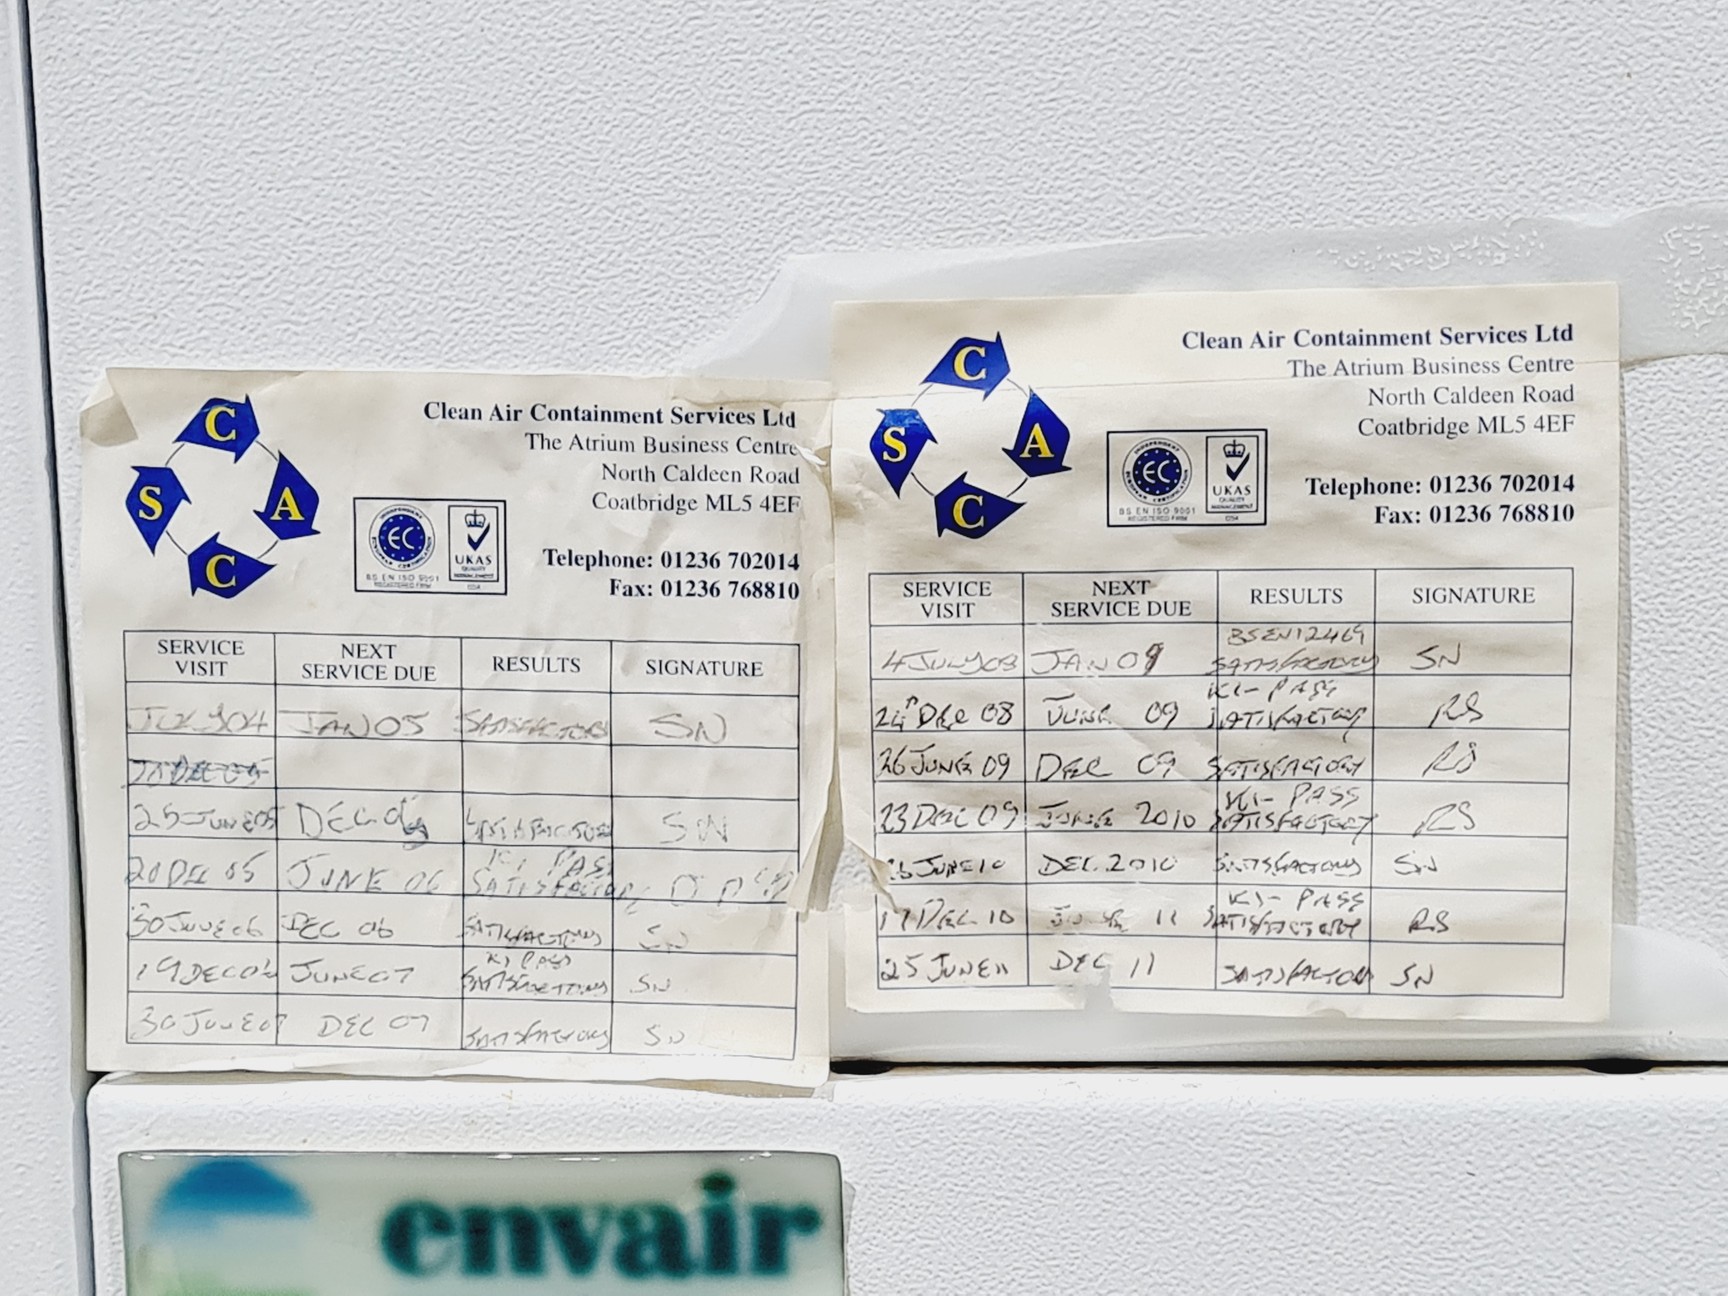 C
A
C
S
Clean Air Containment Services Ltd
The Atrium Business Centre
North Caldeen Road
Coatbridge ML5 4EF
Telephone: 01236 702014
Fax: 01236 768810
INDEPENDENT EUROPEAN CERTIFICATION
EC
BS EN ISO 9001
REGISTERED FIRM
UKAS
QUALITY
MANAGEMENT
SERVICE VISIT NEXT SERVICE DUE RESULTS SIGNATURE
JULY 04 JAN 05 SATISFACTORY SN
25 JUNE 05 DEC SATISFACTORY SN
KI PASS
20 DEC 05 JUNE 06 SATISFACTORY
30 JUNE 06 DEC 06 SATISFACTORY SN
KI PASS
19 DEC 06 JUNE 07 SATISFACTORY SN
30 JUNE 07 DEC 07 SATISFACTORY SN
C
A
C
S
Clean Air Containment Services Ltd
The Atrium Business Centre
North Caldeen Road
Coatbridge ML5 4EF
Telephone: 01236 702014
Fax: 01236 768810
INDEPENDENT EUROPEAN CERTIFICATION
EC
BS EN ISO 9001
REGISTERED FIRM
UKAS
QUALITY
MANAGEMENT
SERVICE VISIT NEXT SERVICE DUE RESULTS SIGNATURE
BSEN12469
4 JULY 08 JAN 09 SATISFACTORY SN
KI-PASS
24th DEC 08 JUNE 09 SATISFACTORY RS
26 JUNE 09 DEC 09 SATISFACTORY RS
KI-PASS
23 DEC 09 JUNE 2010 SATISFACTORY RS
JUNE 10 DEC.2010 SATISFACTORY SN
KI-PASS
17 DEC 10 JUNE 11 SATISFACTORY RS
25 JUNE 11 DEC 11 SATISFACTORY SN
envair